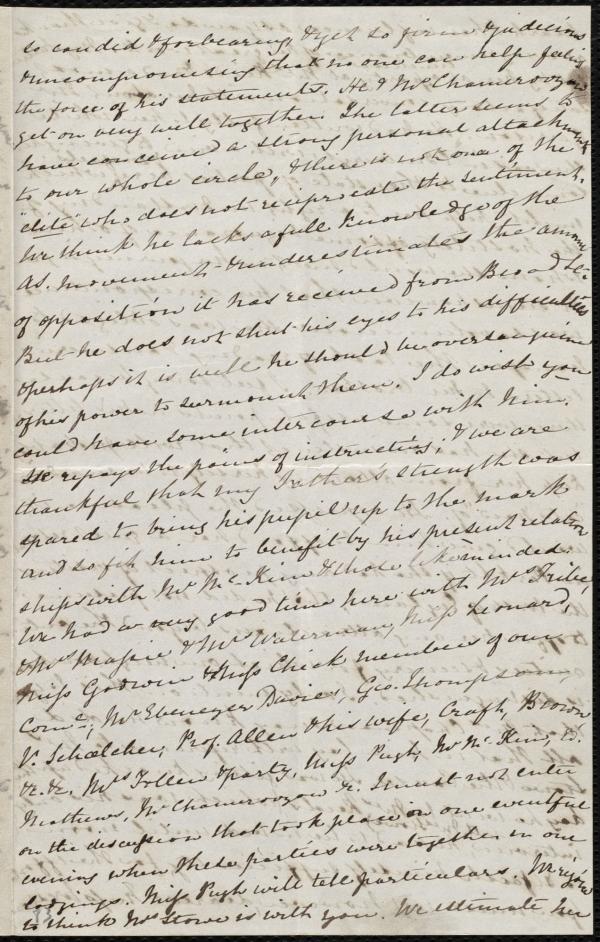 so candid & forbearing, & yet so firm & judicious
& uncompromising that no one can help feeling
the force of his statements. He & Mr. Chamerovzow
get on very well together. The latter seems to
have conceived a strong personal attachment
to our whole circle, & there is not one of the
"elite" who does not reciprocate the sentiment.
We think he lacks a full knowledge of the
AS. movement & underestimates the amount
of opposition it has received from Broad St:
But he does not shut his eyes to his difficulties
& perhaps it is well he should be oversanguine
of his power to surmount them. I do wish you
could have some intercourse with him.
He repays the pains of instructing; & we are
thankful that my Father's strength was
spared to bring his pupil up to the mark
and so fit him to benefit by his present relation
ships with Mr. McKim & those likeminded.
We had a very good time here with Mrs Tribe,
& Mrs Massie & Mrs Waterman, Miss Leonard,
Miss Godwin & Miss Chick members of our
Comee; Mr Ebenezer Davies, Geo. Thompson,
V. Schœlcher, Prof. Allen & his wife, Craft, Brown
&c. &c. Mrs Follen & party, Miss Pugh, Mr. Mc. Kim, E.
Mathews, Mr Chamerovzow &c. I must not enter
on the discussion that took place on one eventful
evening when these parties were together in one
lodgings. Miss Pugh will tell particulars. We rejoice
to think Mrs Stowe is with you. We estimate her